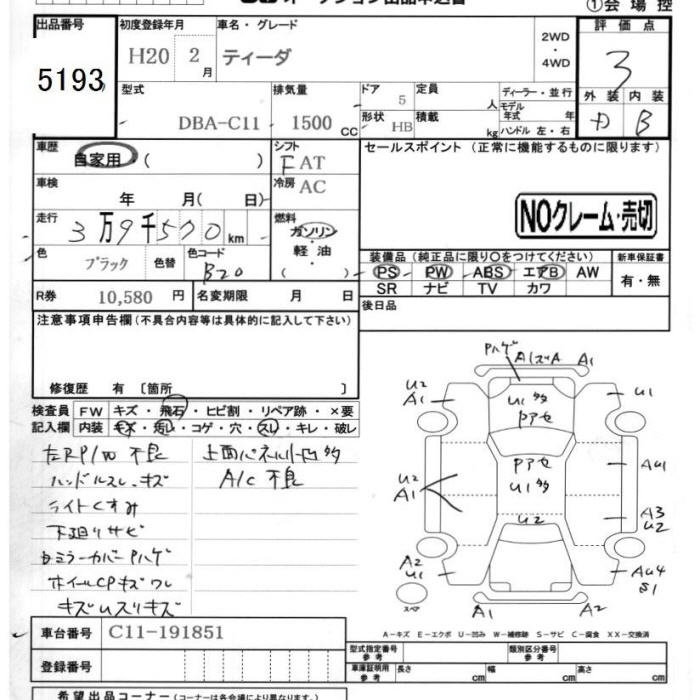 ①会場控
出品番号 初度登録年月 車名・グレード 評価点
5193 H20 2月 ティーダ 2WD・4WD 3
型式 排気量 ドア 定員 ディーラー・並行 外装 内装
DBA-C11 1500CC 5 人 モデル年式 年 B
形状 HB 積載 kg ハンドル 左・右
車歴 自家用・( ) シフト FAT セールスポイント (正常に機能するものに限ります)
車検 年 月( 日) 冷房 AC
NOクレーム・売切
走行 3万9千500km 燃料 ガソリン・軽油・( )
色 ブラック 色替 色コード B20
装備品(純正品に限り○をつけてください) 新車保証書
PS PW ABS エアB AW 有・無
SR ナビ TV カワ
R券 10,580円 名変期限 月 日 後日品
注意事項申告欄(不具合内容等は具体的に記入して下さい)
修復歴 有〔箇所 〕
検査員記入欄 FW キズ・飛石・ヒビ割・リペア跡・×要
内装 キズ・汚れ・コゲ・穴・スレ・キレ・破レ
左RP/W不良 上面パネル小凹多
ハンドルスレ・キズ A/C不良
ライトくすみ
下廻りサビ
ミラーカバーPハゲ
ホイールCPキズワレ
Pハゲ A1ズA A1
U2 A1 U1多 Pアセ U1
Pアセ U1多 A4U1
U2 A1 U2 A3 U2
A2 U1 AU4 S1
スペア A1 A2
A-キズ E-エクボ U-凹み W-補修跡 S-サビ C-腐食 XX-交換済
車台番号 C11-191851
型式指定番号 参考 類別区分番号 参考
登録番号
車庫証明用 参考 長さ cm 幅 cm 高さ cm
希望出品コーナー(コーナーは各会場により異なります。)